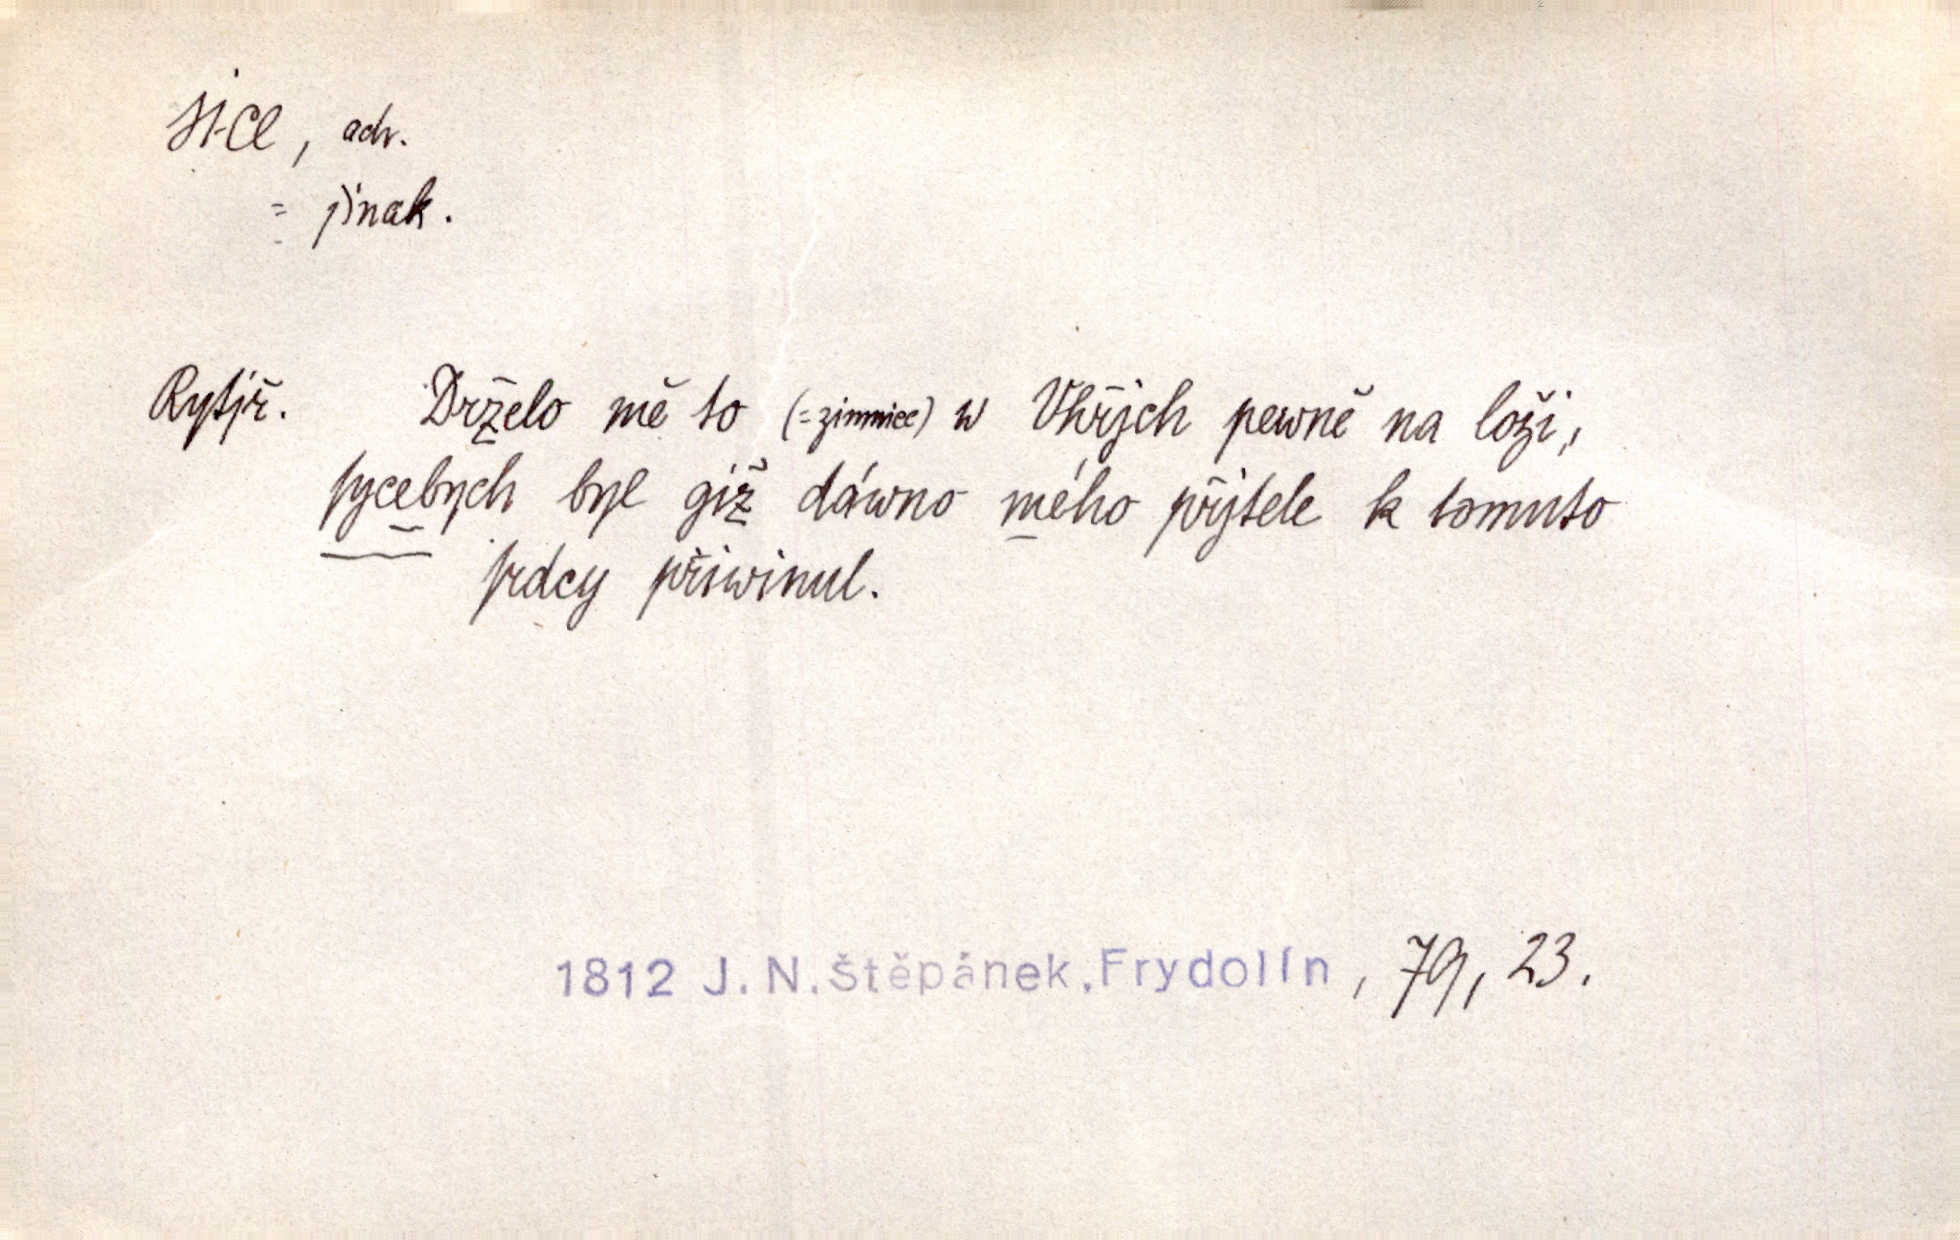 sice, adv.
= jinak.
Rytjř. Drželo mě to (=zimnice) w Uhřjch pewně na loži,
sycebych byl giž dáwno mého přjtele k tomuto
srdcy přiwinul.
1812 J. N. Štěpánek, Frydolín, 79, 23.